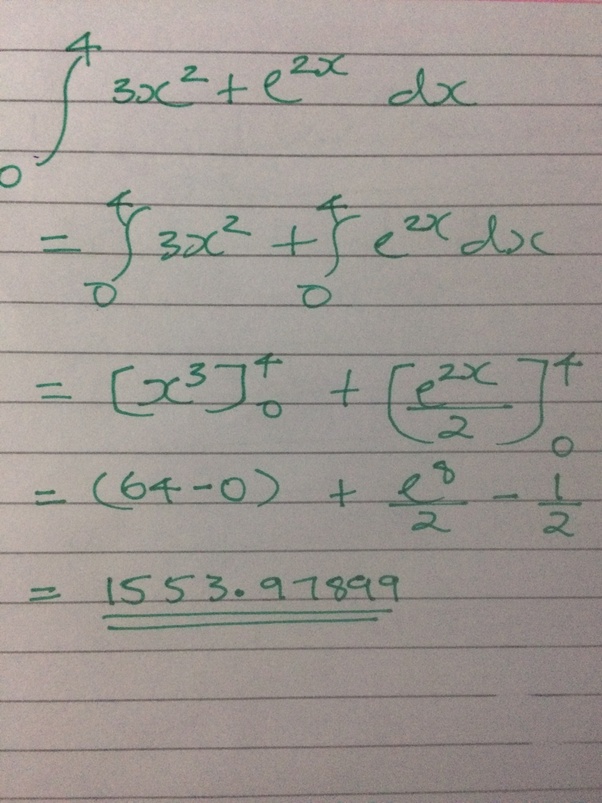 ∫₀⁴ 3x² + e²ˣ dx
= ∫₀⁴ 3x² + ∫₀⁴ e²ˣ dx
= [x³]₀⁴ + [e²ˣ/2]₀⁴
= (64-0) + e⁸/2 - 1/2
= 1553.97899